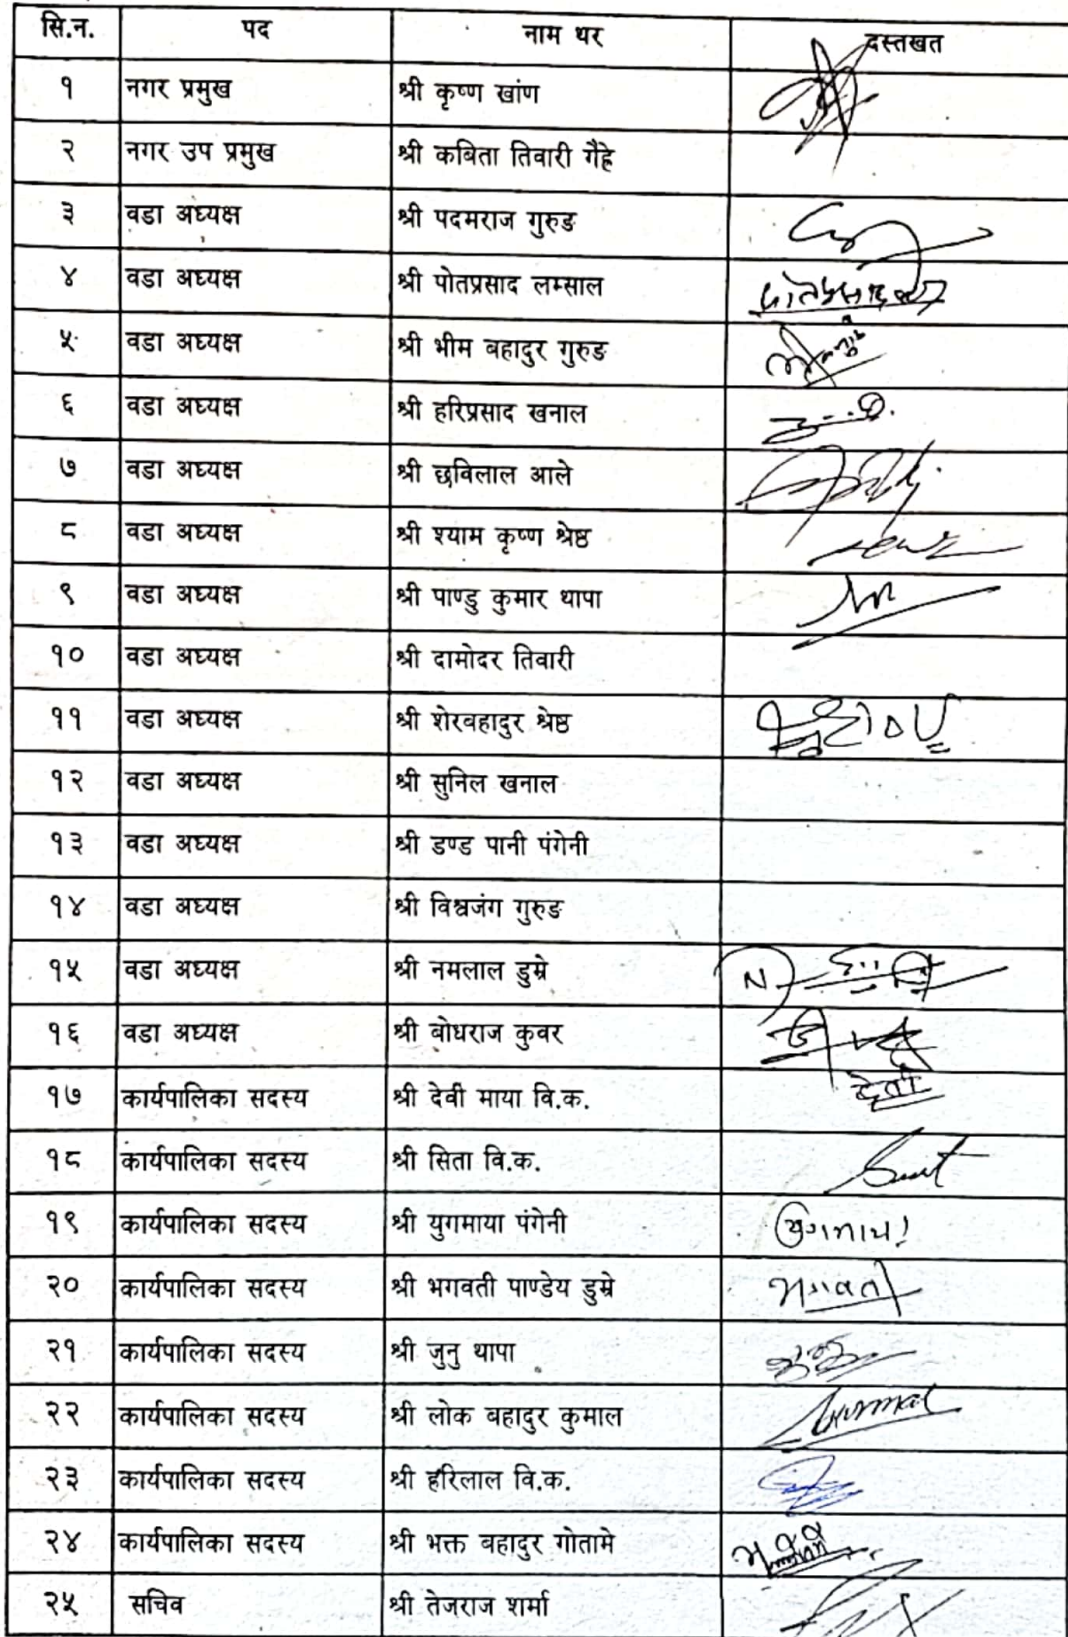 सि.न. पद नाम थर दस्तखत
१ नगर प्रमुख श्री कृष्ण खांण
२ नगर उप प्रमुख श्री कबिता तिवारी गैह्रे
३ वडा अध्यक्ष श्री पदमराज गुरुङ
४ वडा अध्यक्ष श्री पोतप्रसाद लम्साल पोतप्रसाद
५ वडा अध्यक्ष श्री भीम बहादुर गुरुङ
६ वडा अध्यक्ष श्री हरिप्रसाद खनाल
७ वडा अध्यक्ष श्री छविलाल आले
८ वडा अध्यक्ष श्री श्याम कृष्ण श्रेष्ठ
९ वडा अध्यक्ष श्री पाण्डु कुमार थापा
१० वडा अध्यक्ष श्री दामोदर तिवारी
११ वडा अध्यक्ष श्री शेरबहादुर श्रेष्ठ
१२ वडा अध्यक्ष श्री सुनिल खनाल
१३ वडा अध्यक्ष श्री डण्ड पानी पंगेनी
१४ वडा अध्यक्ष श्री विश्वजंग गुरुङ
१५ वडा अध्यक्ष श्री नमलाल डुम्रे
१६ वडा अध्यक्ष श्री बोधराज कुवर
१७ कार्यपालिका सदस्य श्री देवी माया वि.क. देवी
१८ कार्यपालिका सदस्य श्री सिता वि.क.
१९ कार्यपालिका सदस्य श्री युगमाया पंगेनी युगमाया
२० कार्यपालिका सदस्य श्री भगवती पाण्डेय डुम्रे भगवती
२१ कार्यपालिका सदस्य श्री जुनु थापा
२२ कार्यपालिका सदस्य श्री लोक बहादुर कुमाल
२३ कार्यपालिका सदस्य श्री हरिलाल वि.क.
२४ कार्यपालिका सदस्य श्री भक्त बहादुर गोतामे
२५ सचिव श्री तेजराज शर्मा